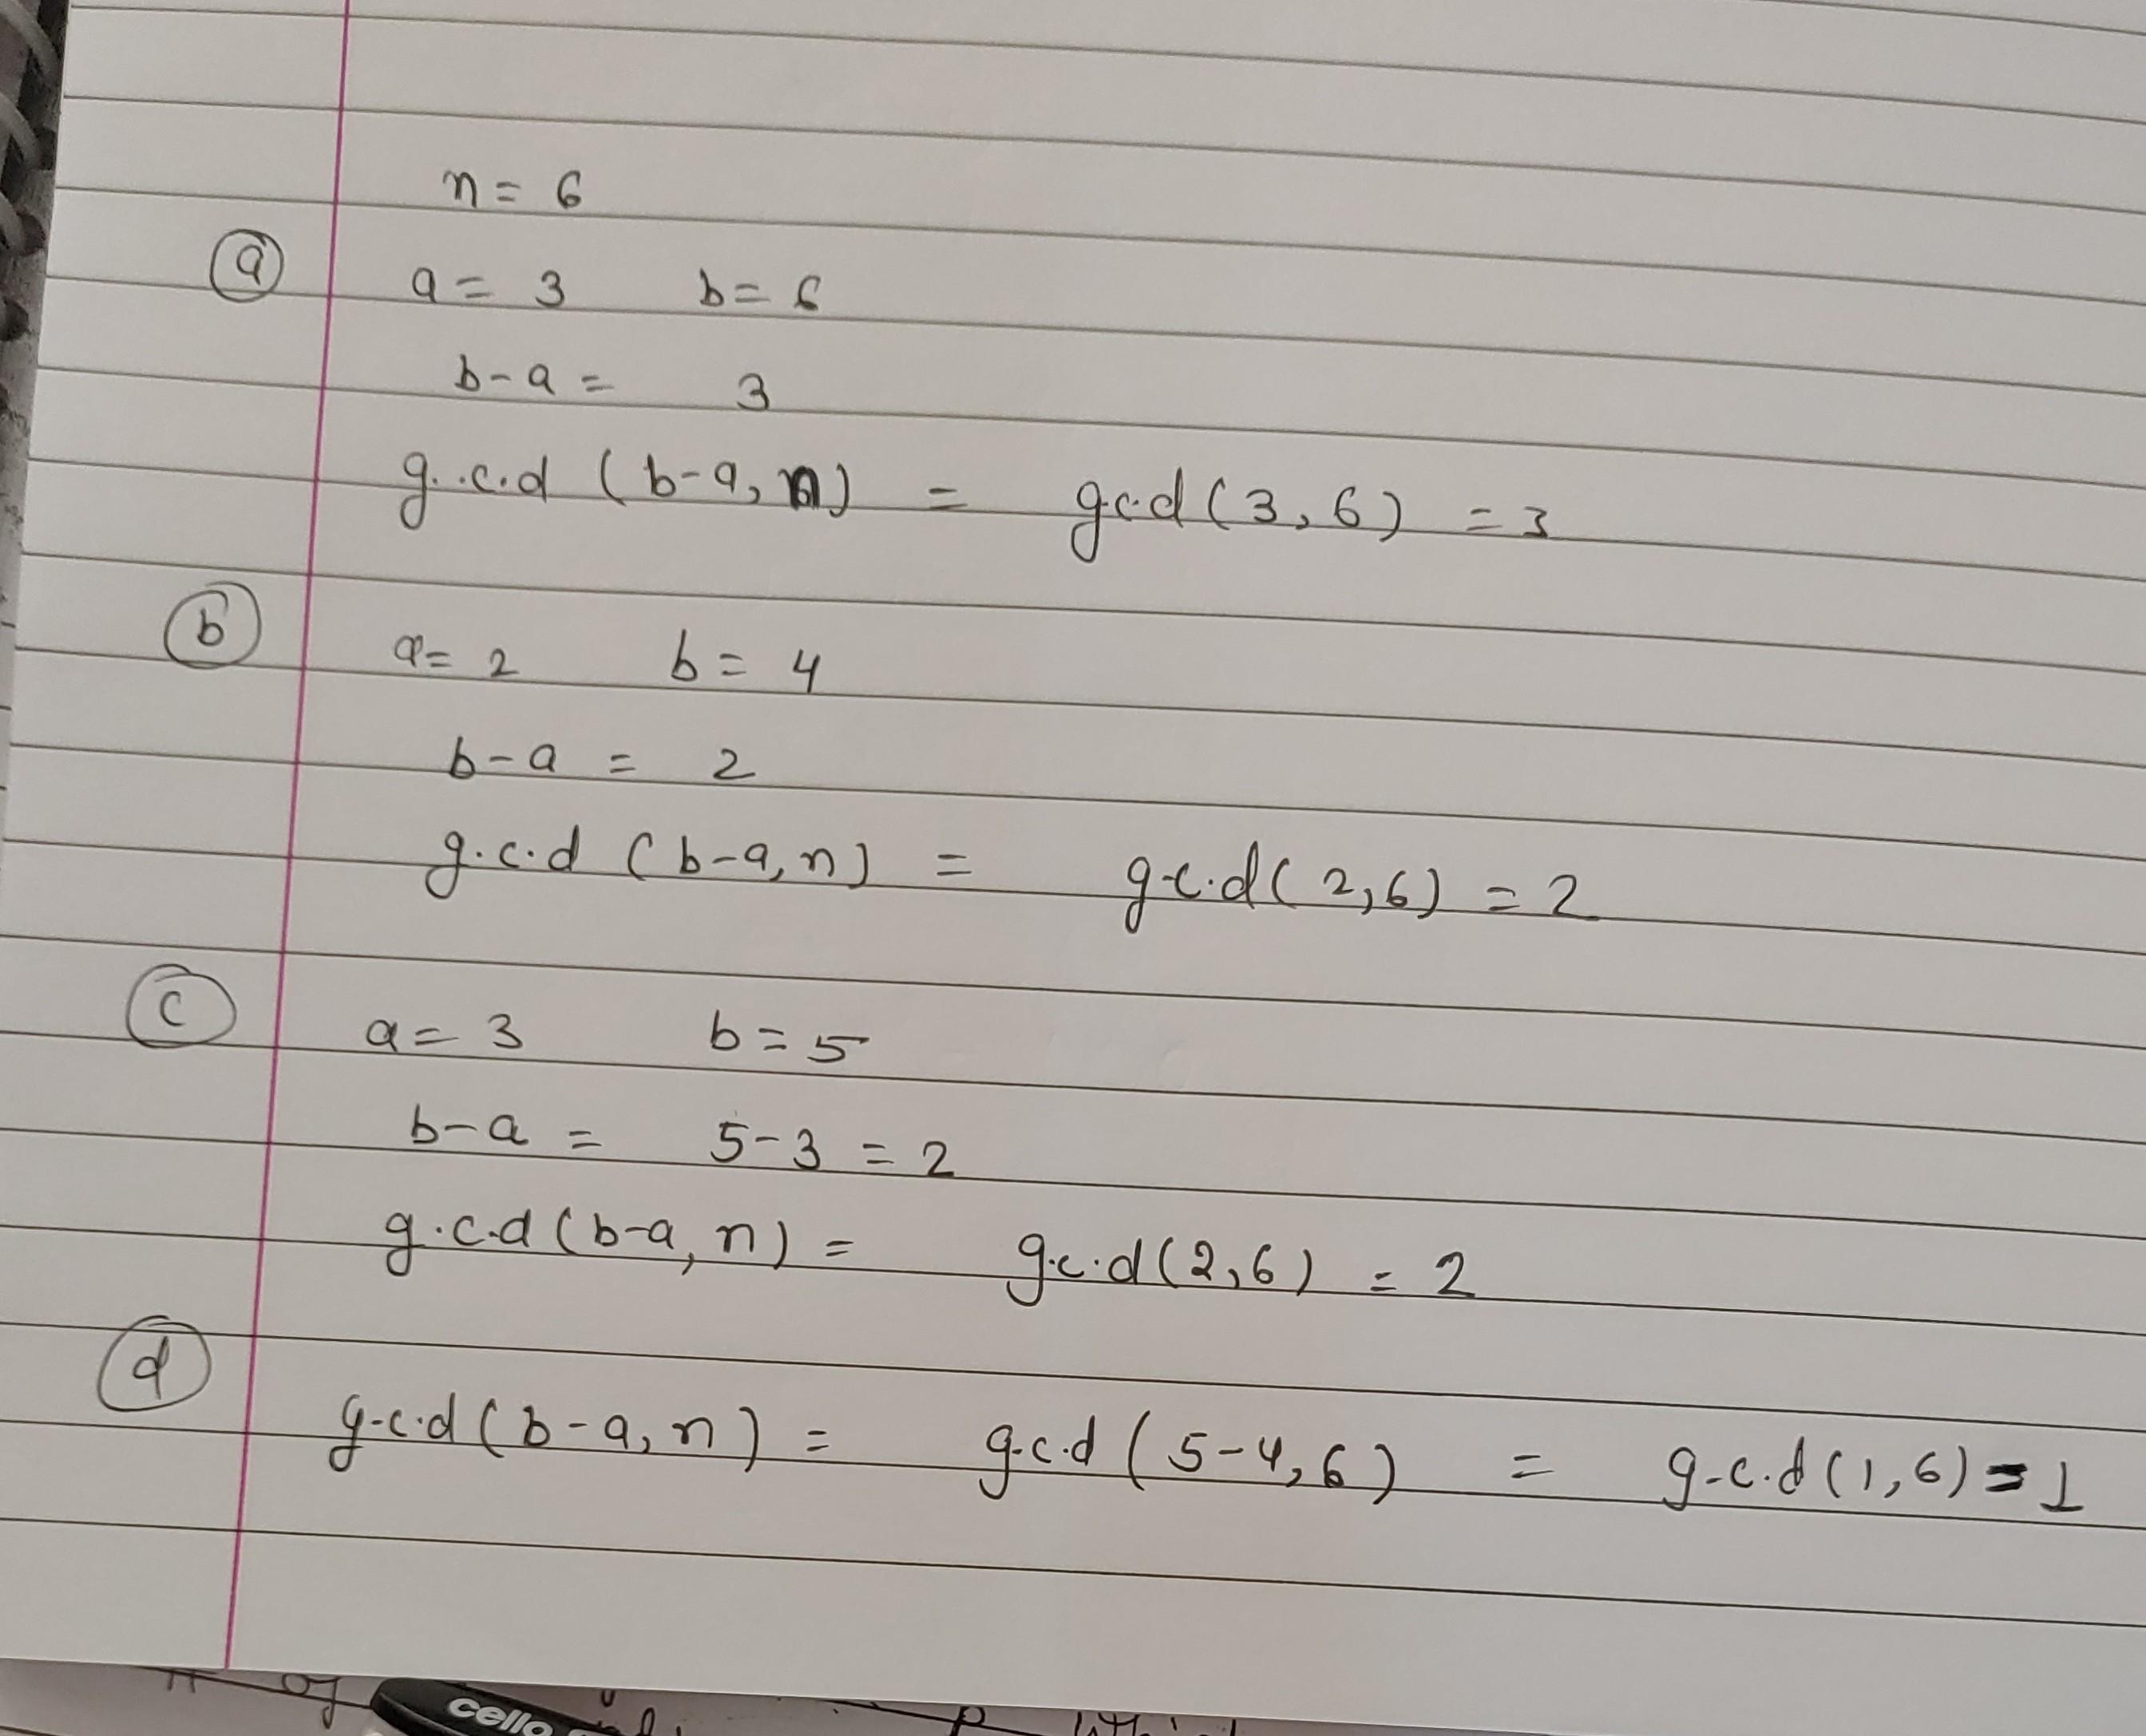 n = 6
a
a = 3 b = 6
b - a = 3
g.c.d (b-a, n) = g.c.d (3, 6) = 3
b
a = 2 b = 4
b - a = 2
g.c.d (b-a, n) = g.c.d (2, 6) = 2
c
a = 3 b = 5
b - a = 5-3 = 2
g.c.d (b-a, n) = g.c.d (2, 6) = 2
d
g.c.d (b-a, n) = g.c.d (5-4, 6) = g.c.d (1, 6) = 1
of
cello